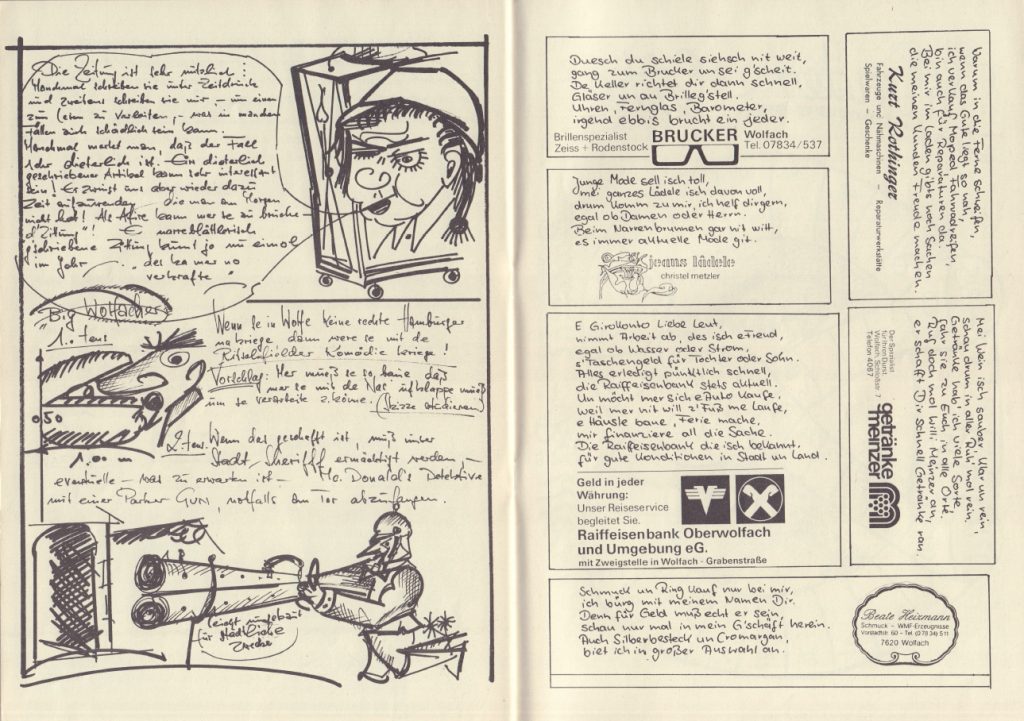 Die Zeitung ist sehr nützlich.
Manchmal schreiben sie unter Zeitdruck
und zweitens schreiben sie nur, um einen
zum Lesen zu verleiten, was in manchen
Fällen auch schädlich sein kann.
Manchmal merkt man, daß der Fall
sehr dieterlich ist. Ein dieterlich
geschriebener Artikel kann sehr interessant
sein! Er zwingt uns aber wieder dazu
Zeit aufzuwenden die man am Morgen
nicht hat!
E narreblättlerisch
g'schriebene Zitung kunnt jo nu eimol
im Johr
"des ka mer no
verkrafte"
"Big Wolfacher"
1. tens
Wenn se in Wolfe keine rechte Hamburger
Komödie kriege!
Vorschlag: Mer mueß se so baue, daß
mer se mit de Nas
(Skizze studieren)
0,50
1.00 m
2. tens. Wenn des geschafft ist, muß unser
Stadt-Sheriff ermächtigt werden,
eventuelle – was zu erwarten ist – Mc. Donald's Detektive
mit einer Parker Gun, notfalls am Tor abzufangen.
leicht umgebaut
für städtische
Zwecke
Duesch du schiele siehsch nit weit,
gang zum Brucker un sei g'scheit.
De Keller richtet dir dann schnell,
Gläser un au Brilleg'stell.
Uhren, Fernglas, Barometer,
irgend ebbis brucht ein jeder.
Brillenspezialist
Zeiss + Rodenstock
BRUCKER
Wolfach
Tel. 07834/537
Junge Mode sell isch toll,
mei ganzes Lädele isch davon voll,
drum kumm zu mir, ich helf dir gern,
egal ob Damen oder Herrn.
Beim Narrenbrunnen gar nit witt,
es immer aktuelle Mode git.
jeans lädele
christel metzler
E Girokonto Liebe Leut,
nimmt Arbeit ab, des isch e Freud,
egal ob Wasser oder Strom,
s'Taschengeld für Tochter oder Sohn.
Alles erledigt pünktlich schnell,
die Raiffeisenbank stets aktuell.
Un möcht mer sich e Auto kaufe,
weil mer nit will z'Fuß me laufe,
e Häusle baue, Ferie mache,
mir finanziere all die Sache.
Die Raiffeisenbank die isch bekannt.
für gute Konditionen in Stadt un Land.
Geld in jeder
Währung:
Unser Reiseservice
begleitet Sie.
Raiffeisenbank Oberwolfach
und Umgebung eG.
mit Zweigstelle in Wolfach - Grabenstraße
Schmuck un Ring kauf nur bei mir,
ich bürg mit meinem Namen Dir.
Denn für Geld muß echt er sein,
schau nur mal in mein G'schäft herein.
Auch Silberbesteck un Cromargan,
biet ich in großer Auswahl an.
Beate Heizmann
Schmuck – WMF-Erzeugnisse
Vorstadtstr. 60 – Tel. (078 34) 511
7620 Wolfach
Warum in die Ferne schweifen,
wenn das Gute liegt so nah,
ich verkauf Moped, Fahrradreifen,
bin auch für Reparaturen da.
Bei mir im Laden gibts noch Sachen
die meinen Kunden Freude machen.
Kurt Rothinger
Fahrzeuge und Nähmaschinen – Reparaturwerkstätte
Spielwaren – Geschenke
Mei Wein isch sauber, klar un rein,
schau drum in aller Ruh' mol rein.
Getränke hab' ich viele Sorte,
fahr sie zu Euch in alle Orte.
Ruf doch mol Willi Meinzer an,
er schafft Dir schnell Getränke ran.
Der Spezialist
für Ihren Durst
Wolfach, Schloßstr. 7
Telefon 4067
getränke
meinzer